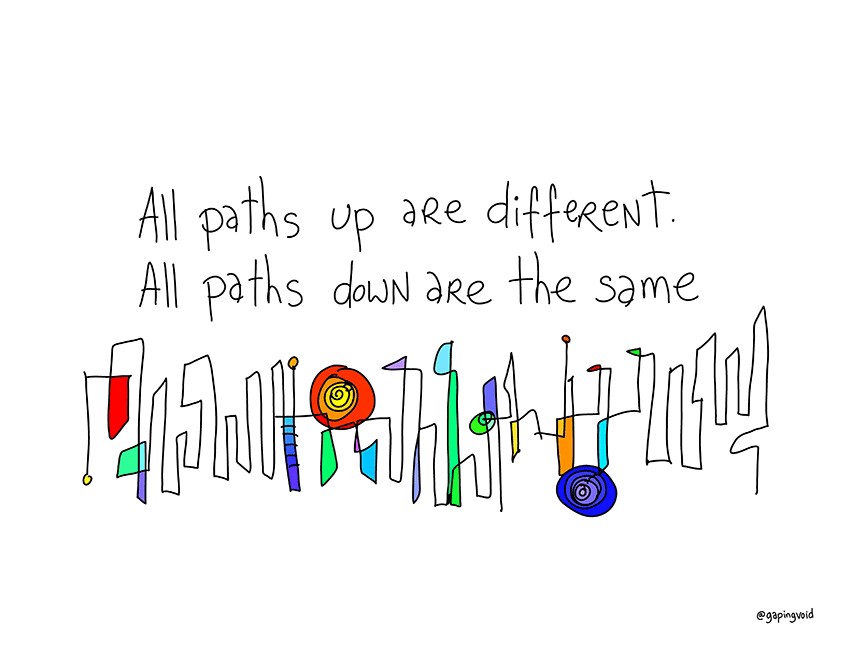 All paths up are different.
All paths down are the same
@gapingvoid